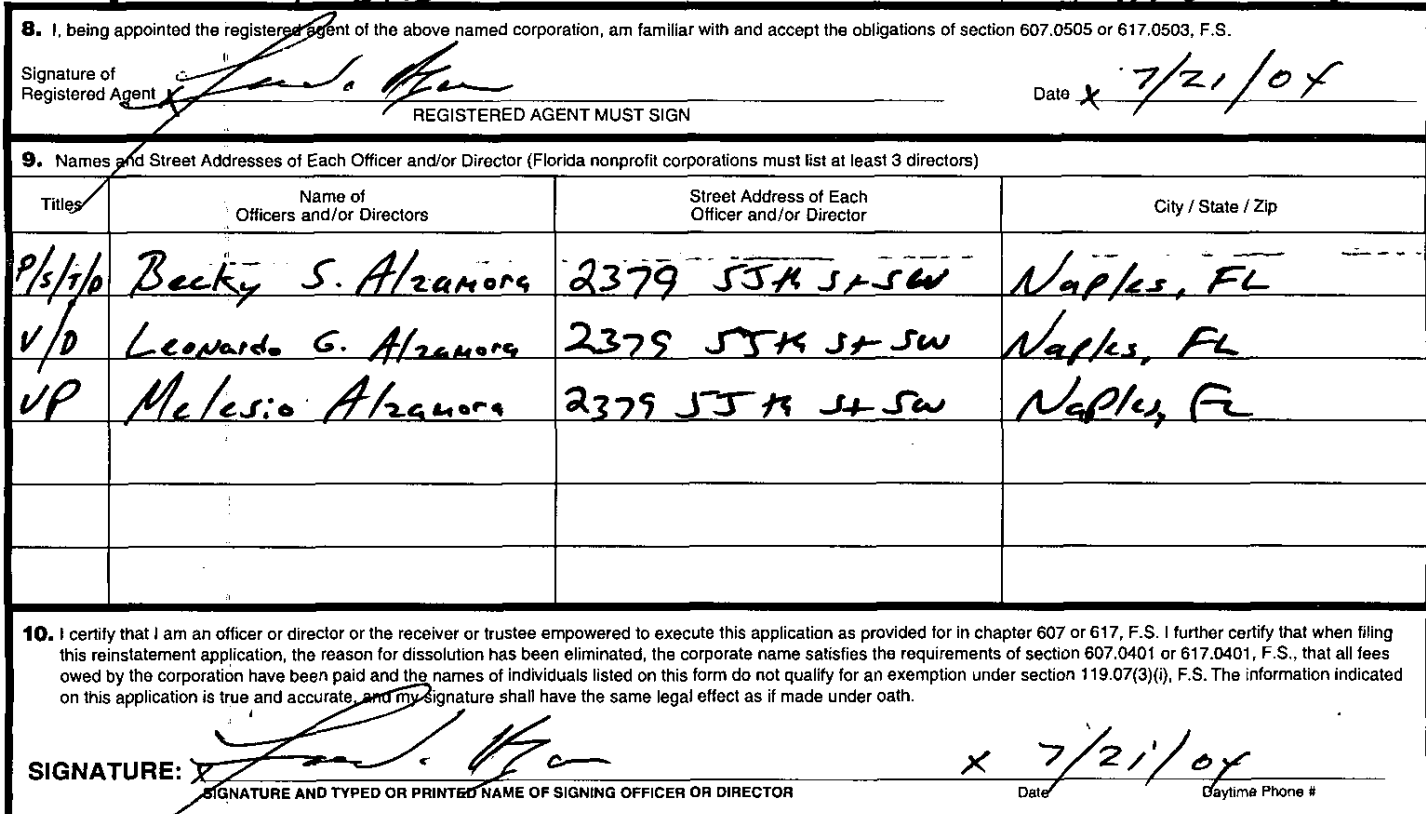 8. I, being appointed the registered agent of the above named corporation, am familiar with and accept the obligations of section 607.0505 or 617.0503, F.S.
Signature of
Registered Agent x Date x 7/21/04
REGISTERED AGENT MUST SIGN
9. Names and Street Addresses of Each Officer and/or Director (Florida nonprofit corporations must list at least 3 directors)
Titles Name of Officers and/or Directors Street Address of Each Officer and/or Director City / State / Zip
P/S/T/D Becky S. Alzamora 2379 55th St SW Naples, FL
V/D Leonardo G. Alzamora 2379 55th St SW Naples, FL
VP Melesio Alzamora 2379 55th St SW Naples, FL
10. I certify that I am an officer or director or the receiver or trustee empowered to execute this application as provided for in chapter 607 or 617, F.S. I further certify that when filing
this reinstatement application, the reason for dissolution has been eliminated, the corporate name satisfies the requirements of section 607.0401 or 617.0401, F.S., that all fees
owed by the corporation have been paid and the names of individuals listed on this form do not qualify for an exemption under section 119.07(3)(i), F.S. The information indicated
on this application is true and accurate, and my signature shall have the same legal effect as if made under oath.
SIGNATURE: x x 7/21/04
SIGNATURE AND TYPED OR PRINTED NAME OF SIGNING OFFICER OR DIRECTOR Date Daytime Phone #